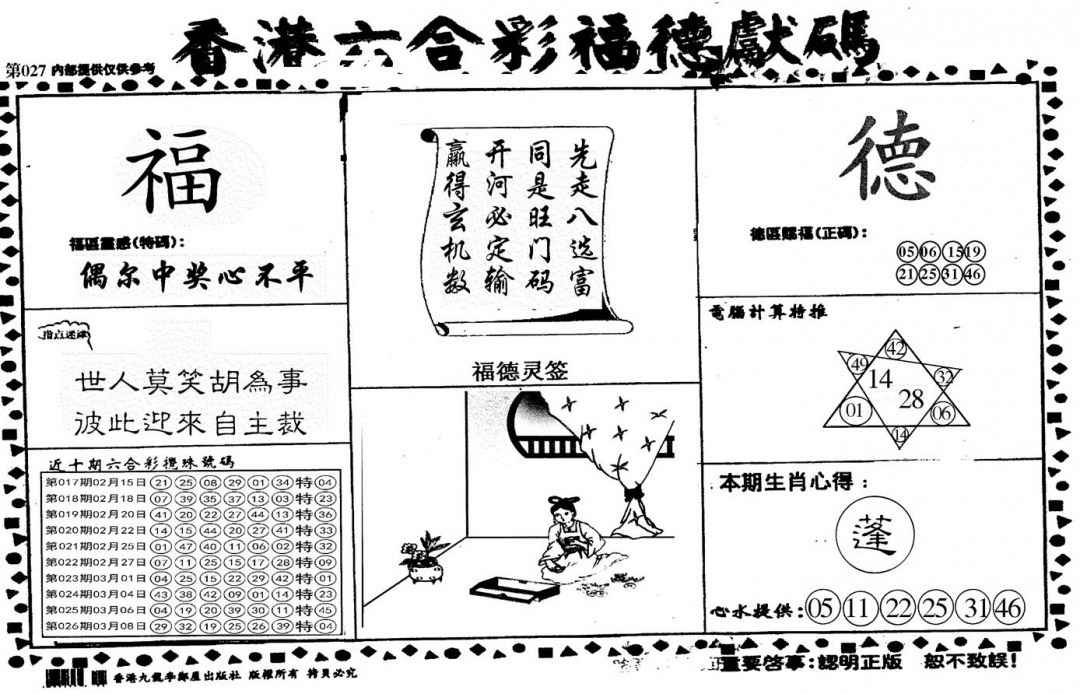 香港六合彩福德獻碼
第027 内部提供仅供参考
福
福區靈感(特碼):
偶尔中奖心不平
指点迷津
世人莫笑胡為事
彼此迎來自主裁
近十期六合彩攪珠號碼
第017期02月15日 21 25 08 29 01 34 特 04
第018期02月18日 07 39 35 37 13 03 特 23
第019期02月20日 41 20 22 27 44 13 特 36
第020期02月22日 14 15 44 20 27 41 特 33
第021期02月25日 01 47 40 11 06 02 特 32
第022期02月27日 07 11 25 15 17 28 特 09
第023期03月01日 04 25 15 22 29 42 特 01
第024期03月04日 43 38 42 09 01 14 特 23
第025期03月06日 04 19 20 39 30 11 特 45
第026期03月08日 29 32 19 25 26 39 特 04
先走八选富
同是旺门码
开河必定输
赢得玄机数
福德灵签
德
德區賜福(正碼):
05 06 15 19
21 25 31 46
電腦計算特推
42
49
32
14
28
01
06
14
本期生肖心得:
蓬
心水提供: 05 11 22 25 31 46
香港九龍李鄭屋出版社 版權所有 拷貝必究
重要啓事:認明正版 恕不致誤!